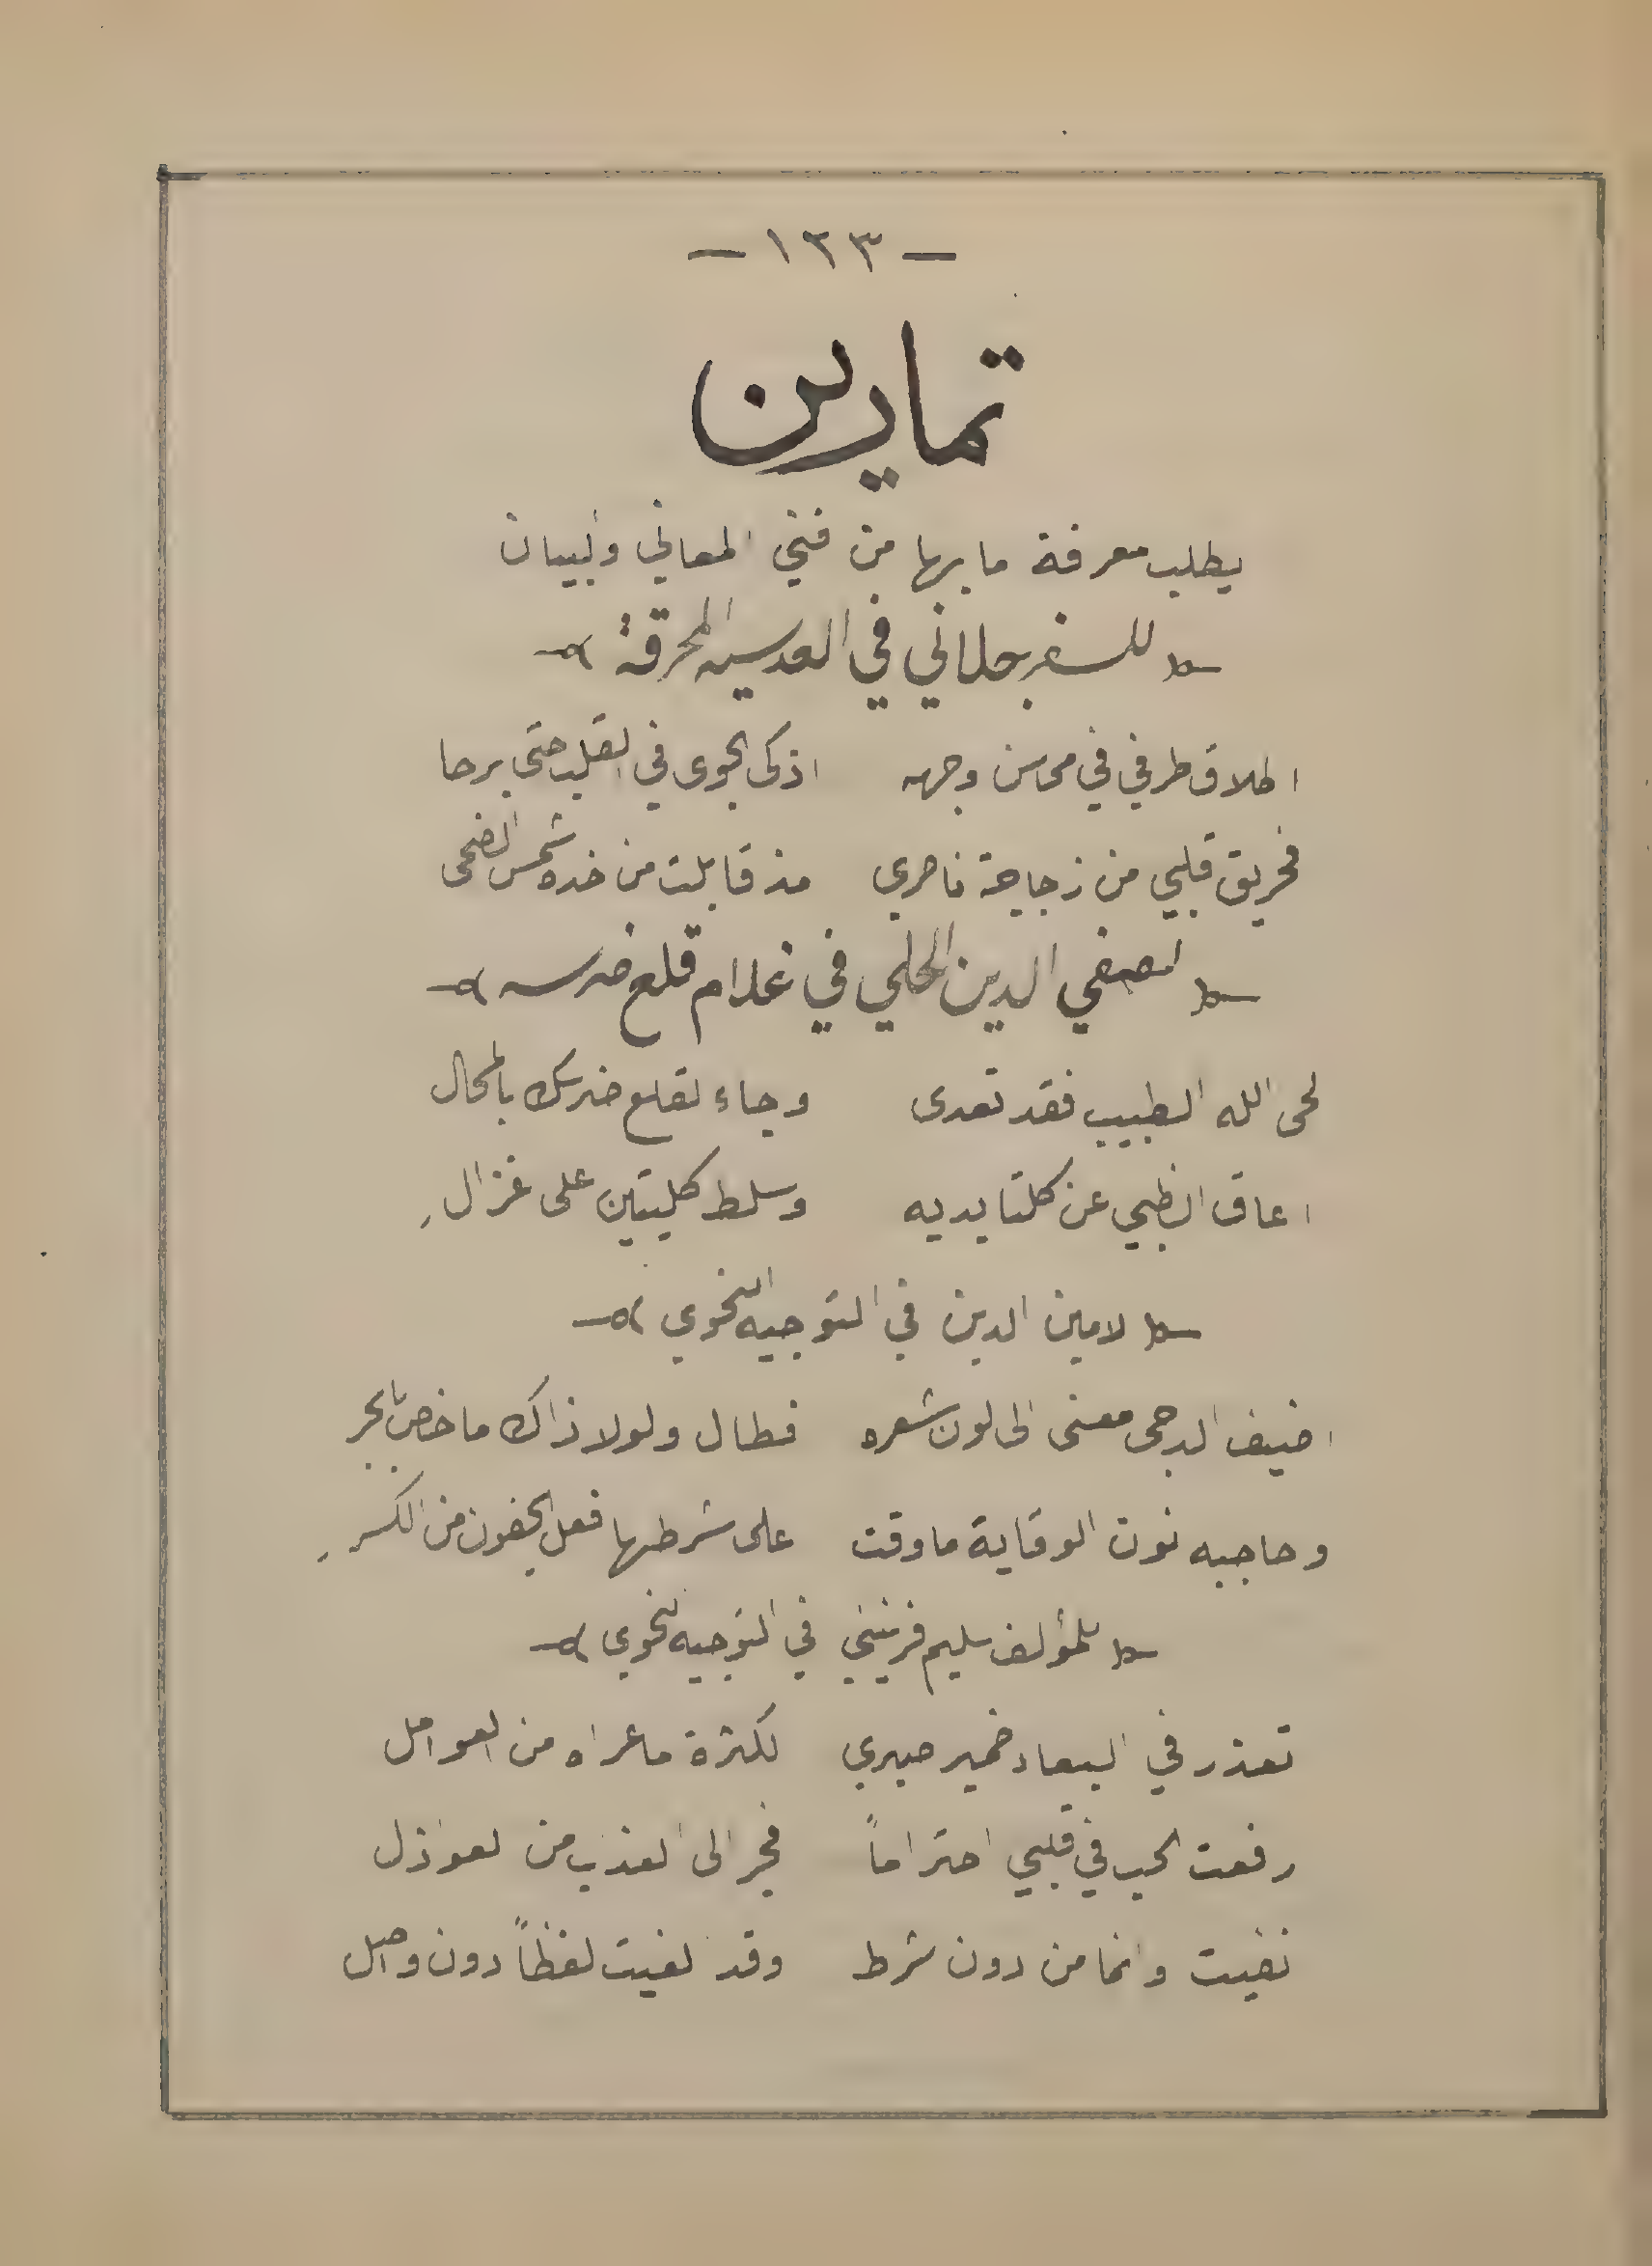 — ١٢٣ —
تمارين
يطلب معرفة ما بها من فني المعاني والبيان
للسفرجلاني في العدسية المحرقة
اطلاق طرفي في محاسن وجهه اذكى الجوى في القلب حتى برحا
فحريق قلبي من زجاجة ناظري مذ قابلت من خده شمس الضحى
لصفي الدين الحلي في غلام قلع ضرسه
لحى الله الطبيب فقد تعدى وجاء لقلع ضرسك بالمحال
اعاق الظبي عن كلتا يديه وسلط كلبتين على غزالِ
لامين الدين في التوجيه النحوي
اضيف الدجى معنى الى لون شعره فطال ولولا ذاك ما خص بالجر
وحاجبه نون الوقاية ما وقت على شرطها فعل الجفون من الكسرِ
للمؤلف سليم قرنيني في التوجيه النحوي
تعذر في البعاد ضمير صبري لكثرة ما عراه من العوامل
رفعت الحب في قلبي احتراماً فجر الى العذاب من لعواذل
نفيت وانما من دون شرط وقد لغيت لفظاً دون واصل